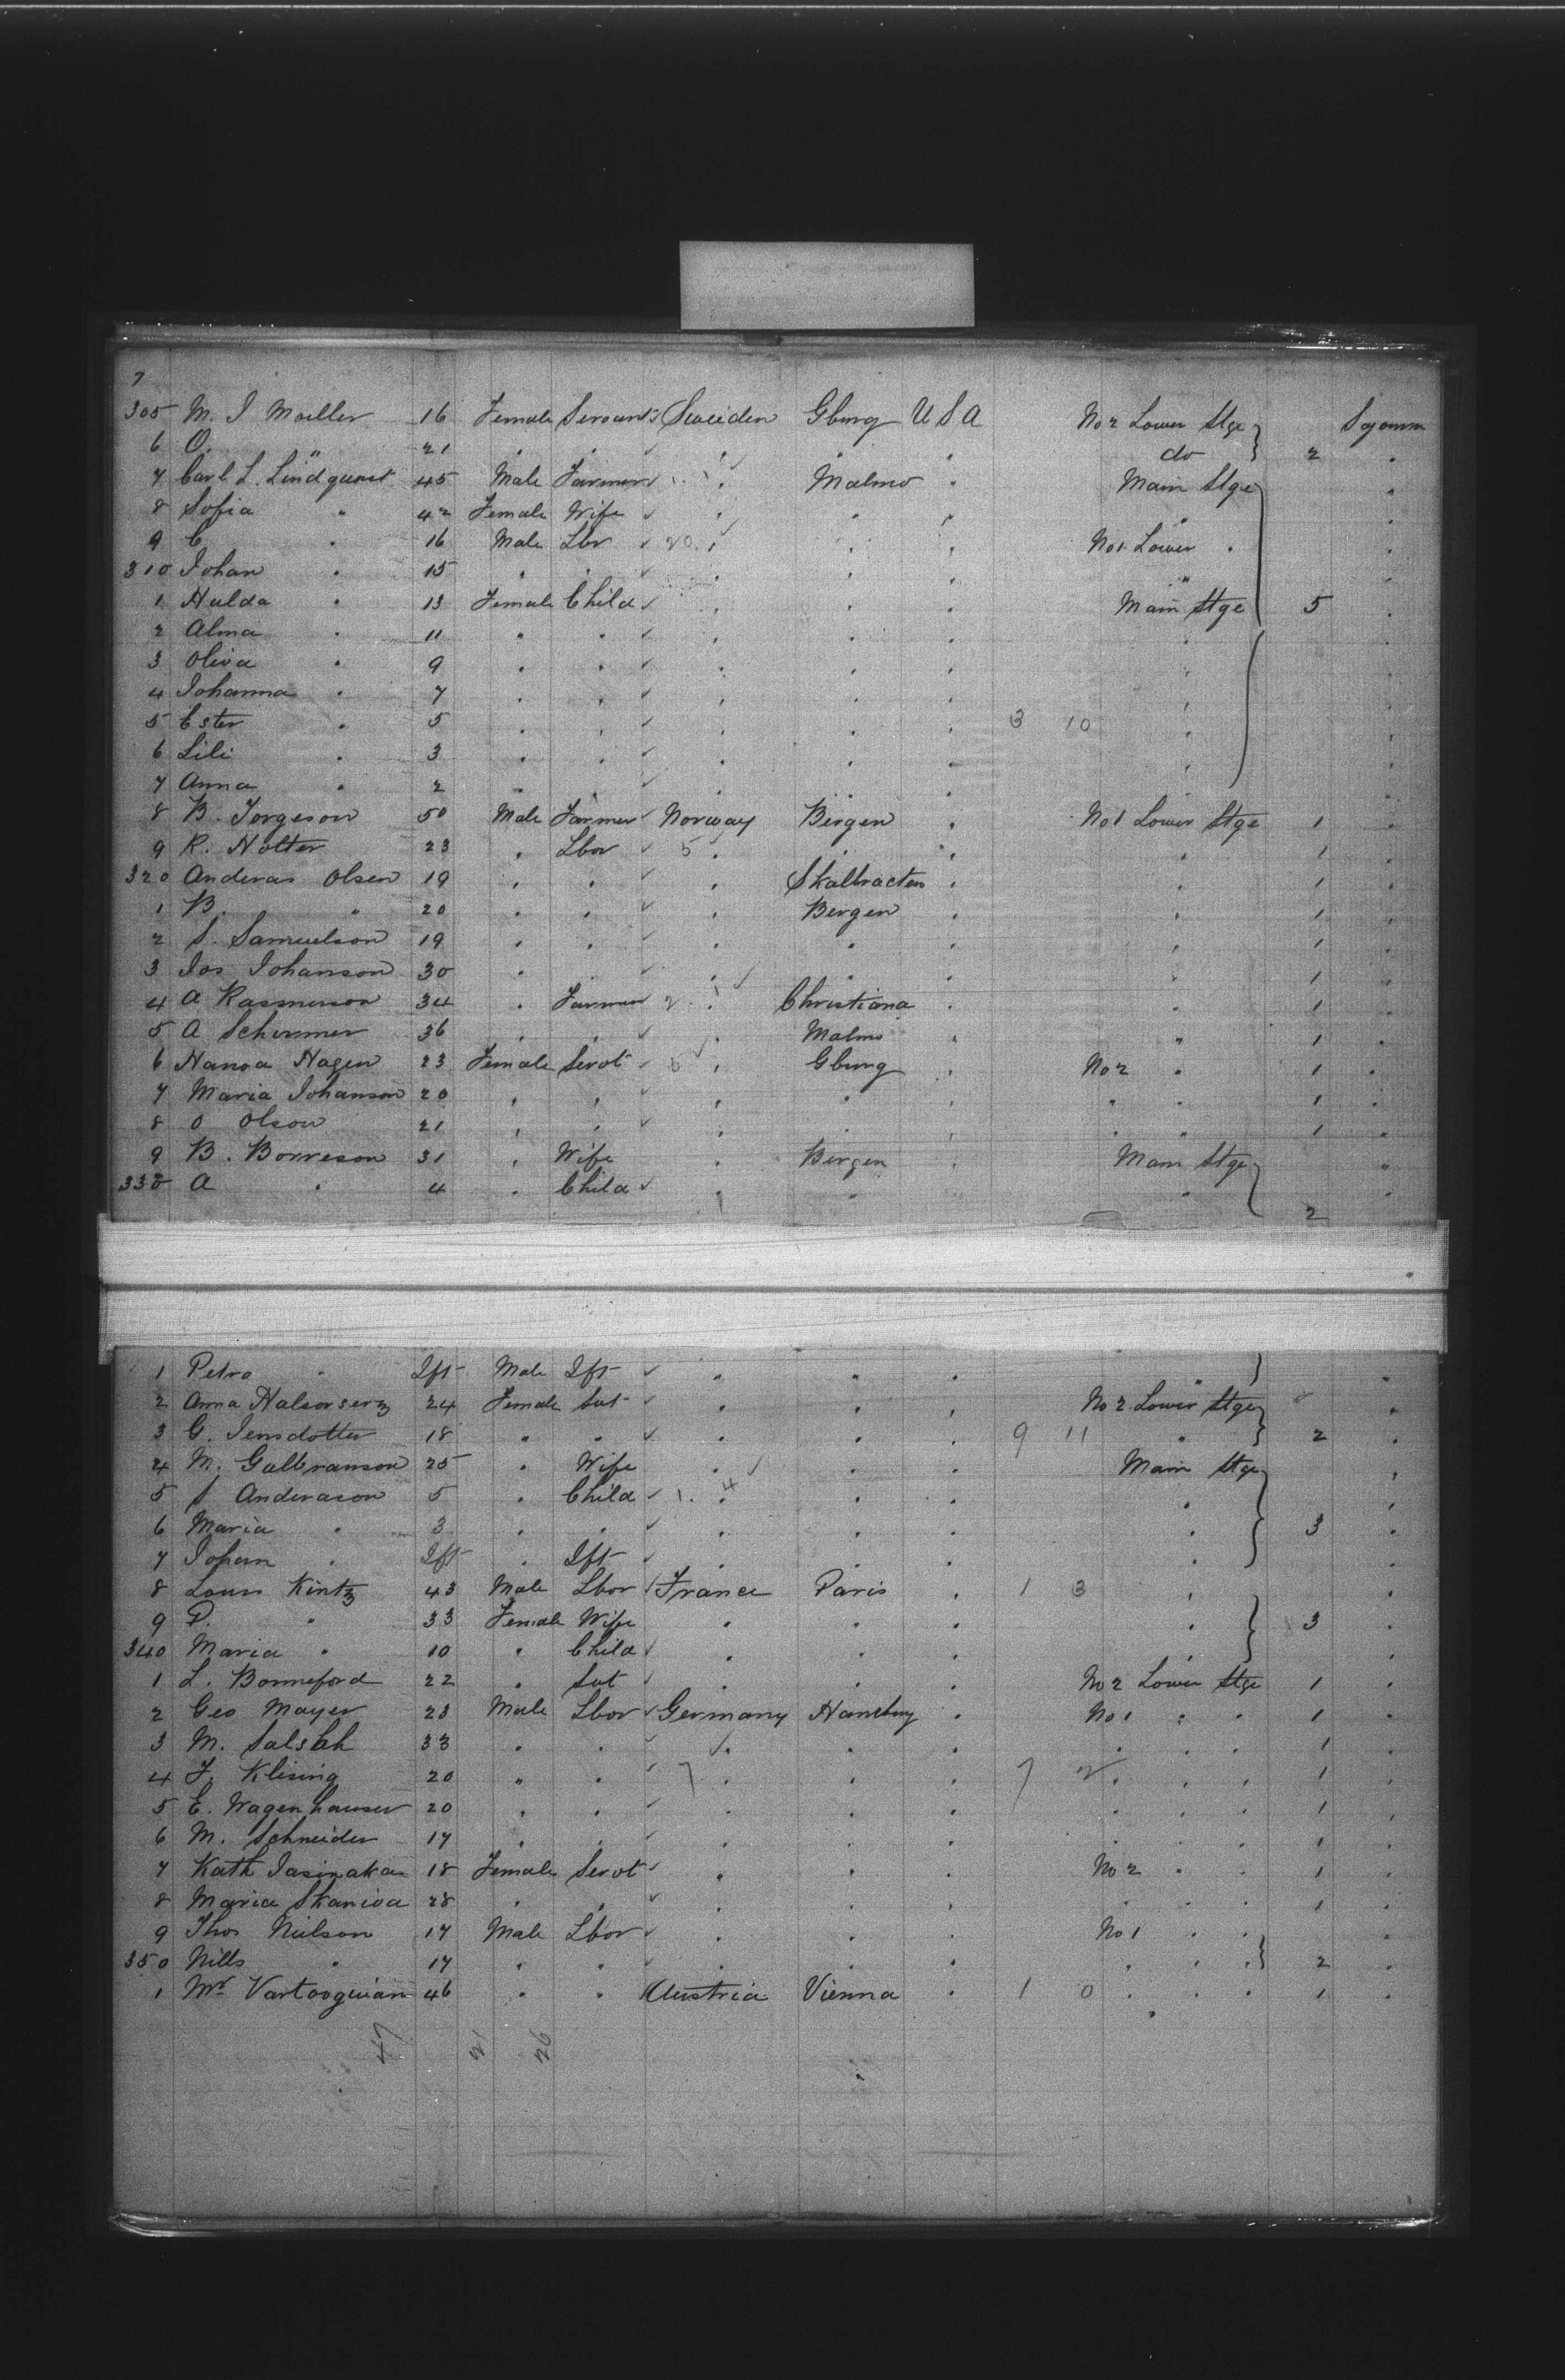 7
305 M. J Moeller 16 Female Servants Sweeden Gburg U S A No 2 Lower Stge Sojourn
6 O. " 21 " " " " " do 2 "
7 Carl L. Lindquest 45 Male Farmer " Malmo " Main Stge "
8 Sofia " 42 Female Wife " " " " "
9 C " 16 Male Lbr 20 " " " No 1 Lower " "
310 Johan " 15 " " " " " " "
1 Hulda " 13 Female Child " " " Main Stge 5 "
2 Alma " 11 " " " " " " "
3 Oliva " 9 " " " " " " "
4 Johanna " 7 " " " " " " "
5 Ester " 5 " " " " " 3 10 " "
6 Lili " 3 " " " " " " "
7 Anna " 2 " " " " " " "
8 B. Jorgeson 50 Male Farmer Norway Bergen " No 1 Lower Stge 1 "
9 R. Notter 23 " Lbor 5 " " " " 1 "
320 Anderas Olsen 19 " " " Skalbracten " " 1 "
1 B. " 20 " " " Bergen " " 1 "
2 S. Samuelson 19 " " " " " " 1 "
3 Jos Johanson 30 " " " " " " 1 "
4 A Rasmuson 34 " Farmer 2 " Christiana " " 1 "
5 A Schirmer 36 " " " Malmo " " 1 "
6 Hanna Hagen 23 Female Servt 5 " Gburg " No 2 " 1 "
7 Maria Johanson 20 " " " " " " " 1 "
8 O Olson 21 " " " " " " " 1 "
9 B. Borreson 31 " Wife " Bergen " Main Stge "
330 A " 4 " Child " " " 2 "
1 Petra " Ift Male Ift " " " "
2 Anna Halvorserz 24 Female Svt " " " No 2 Lower Stge "
3 G. Jensdotter 18 " " " " " 9 11 " 2 "
4 M. Gulbranson 25 " Wife " " " Main Stge "
5 S Anderason 5 " Child 1. 4 " " " " "
6 Maria " 3 " " " " " " 3 "
7 Johan " Ift " Ift " " " " "
8 Louis Kintz 43 Male Lbor France Paris " 1 3 " "
9 P. " 33 Female Wife " " " " 3 "
340 Maria " 10 " Child " " " " "
1 L. Bonneford 22 " Svt " " " No 2 Lower Stge 1 "
2 Geo Mayer 23 Male Lbor Germany Hamburg " No 1 " " 1 "
3 M. Salsbh 33 " " " " " " " " 1 "
4 F. Klising 20 " " 7 " " " 7 2 " " " 1 "
5 E. Wagenhauser 20 " " " " " " " " 1 "
6 M. Schneider 17 " " " " " " " " 1 "
7 Kath Jasinaka 18 Female Servt " " " No 2 " " 1 "
8 Maria Skaniva 28 " " " " " " " " 1 "
9 Thos Nielson 17 Male Lbor " " " No 1 " " "
350 Nills " 17 " " " " " " " " 2 "
1 Mr Vartooguian 46 " " Austria Vienna " 1 0 " " " 1 "
47 21 26